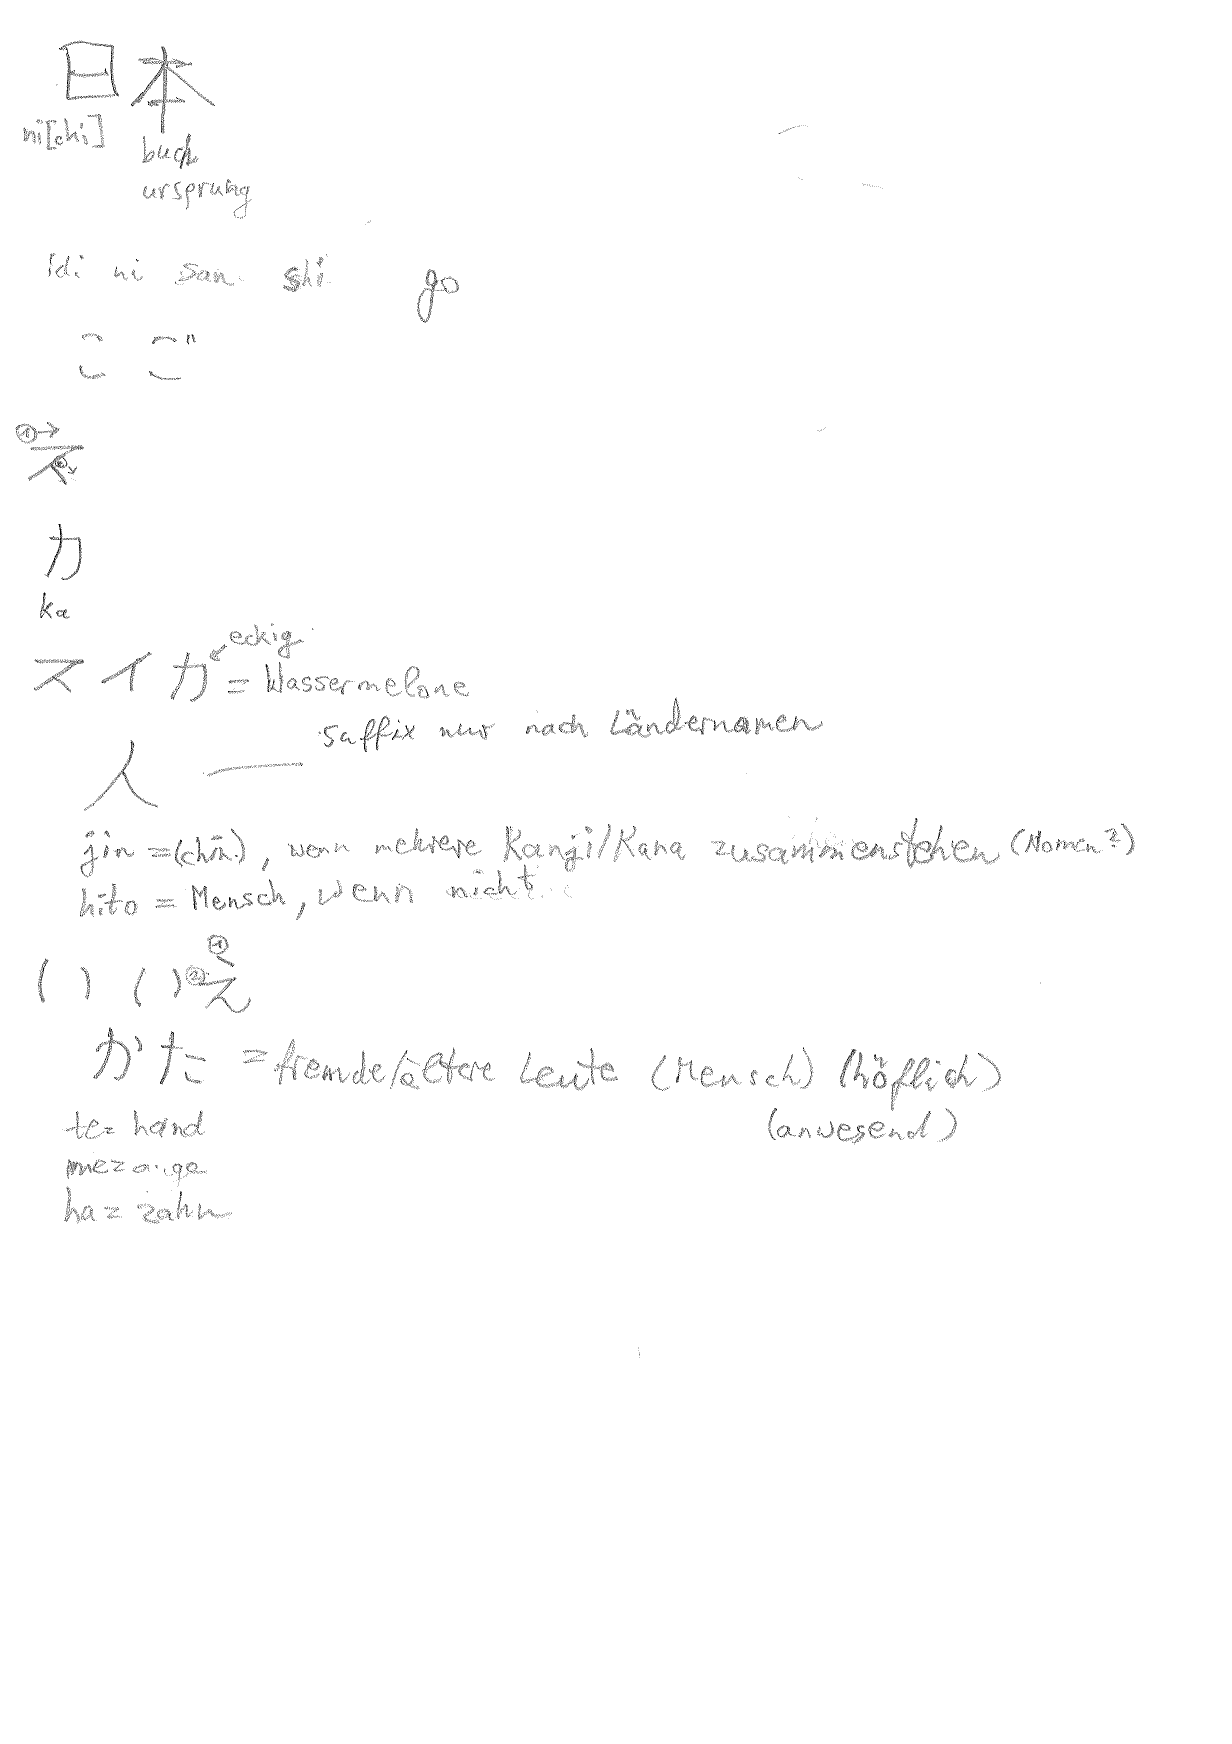 日本
ni[chi] buch
ursprung
ichi ni san shi go
こ ご
① →
ス ②
カ
ka
eckig
スイカ = Wassermelone
人 suffix nur nach Ländernamen
jin = (chin.), wenn mehrere Kanji/Kana zusammenstehen (Nomen?)
hito = Mensch, wenn nicht
① ②
いいえ
がた = fremde/ältere Leute (Mensch) (höflich)
(anwesend)
te= hand
me= auge
ha= zahn